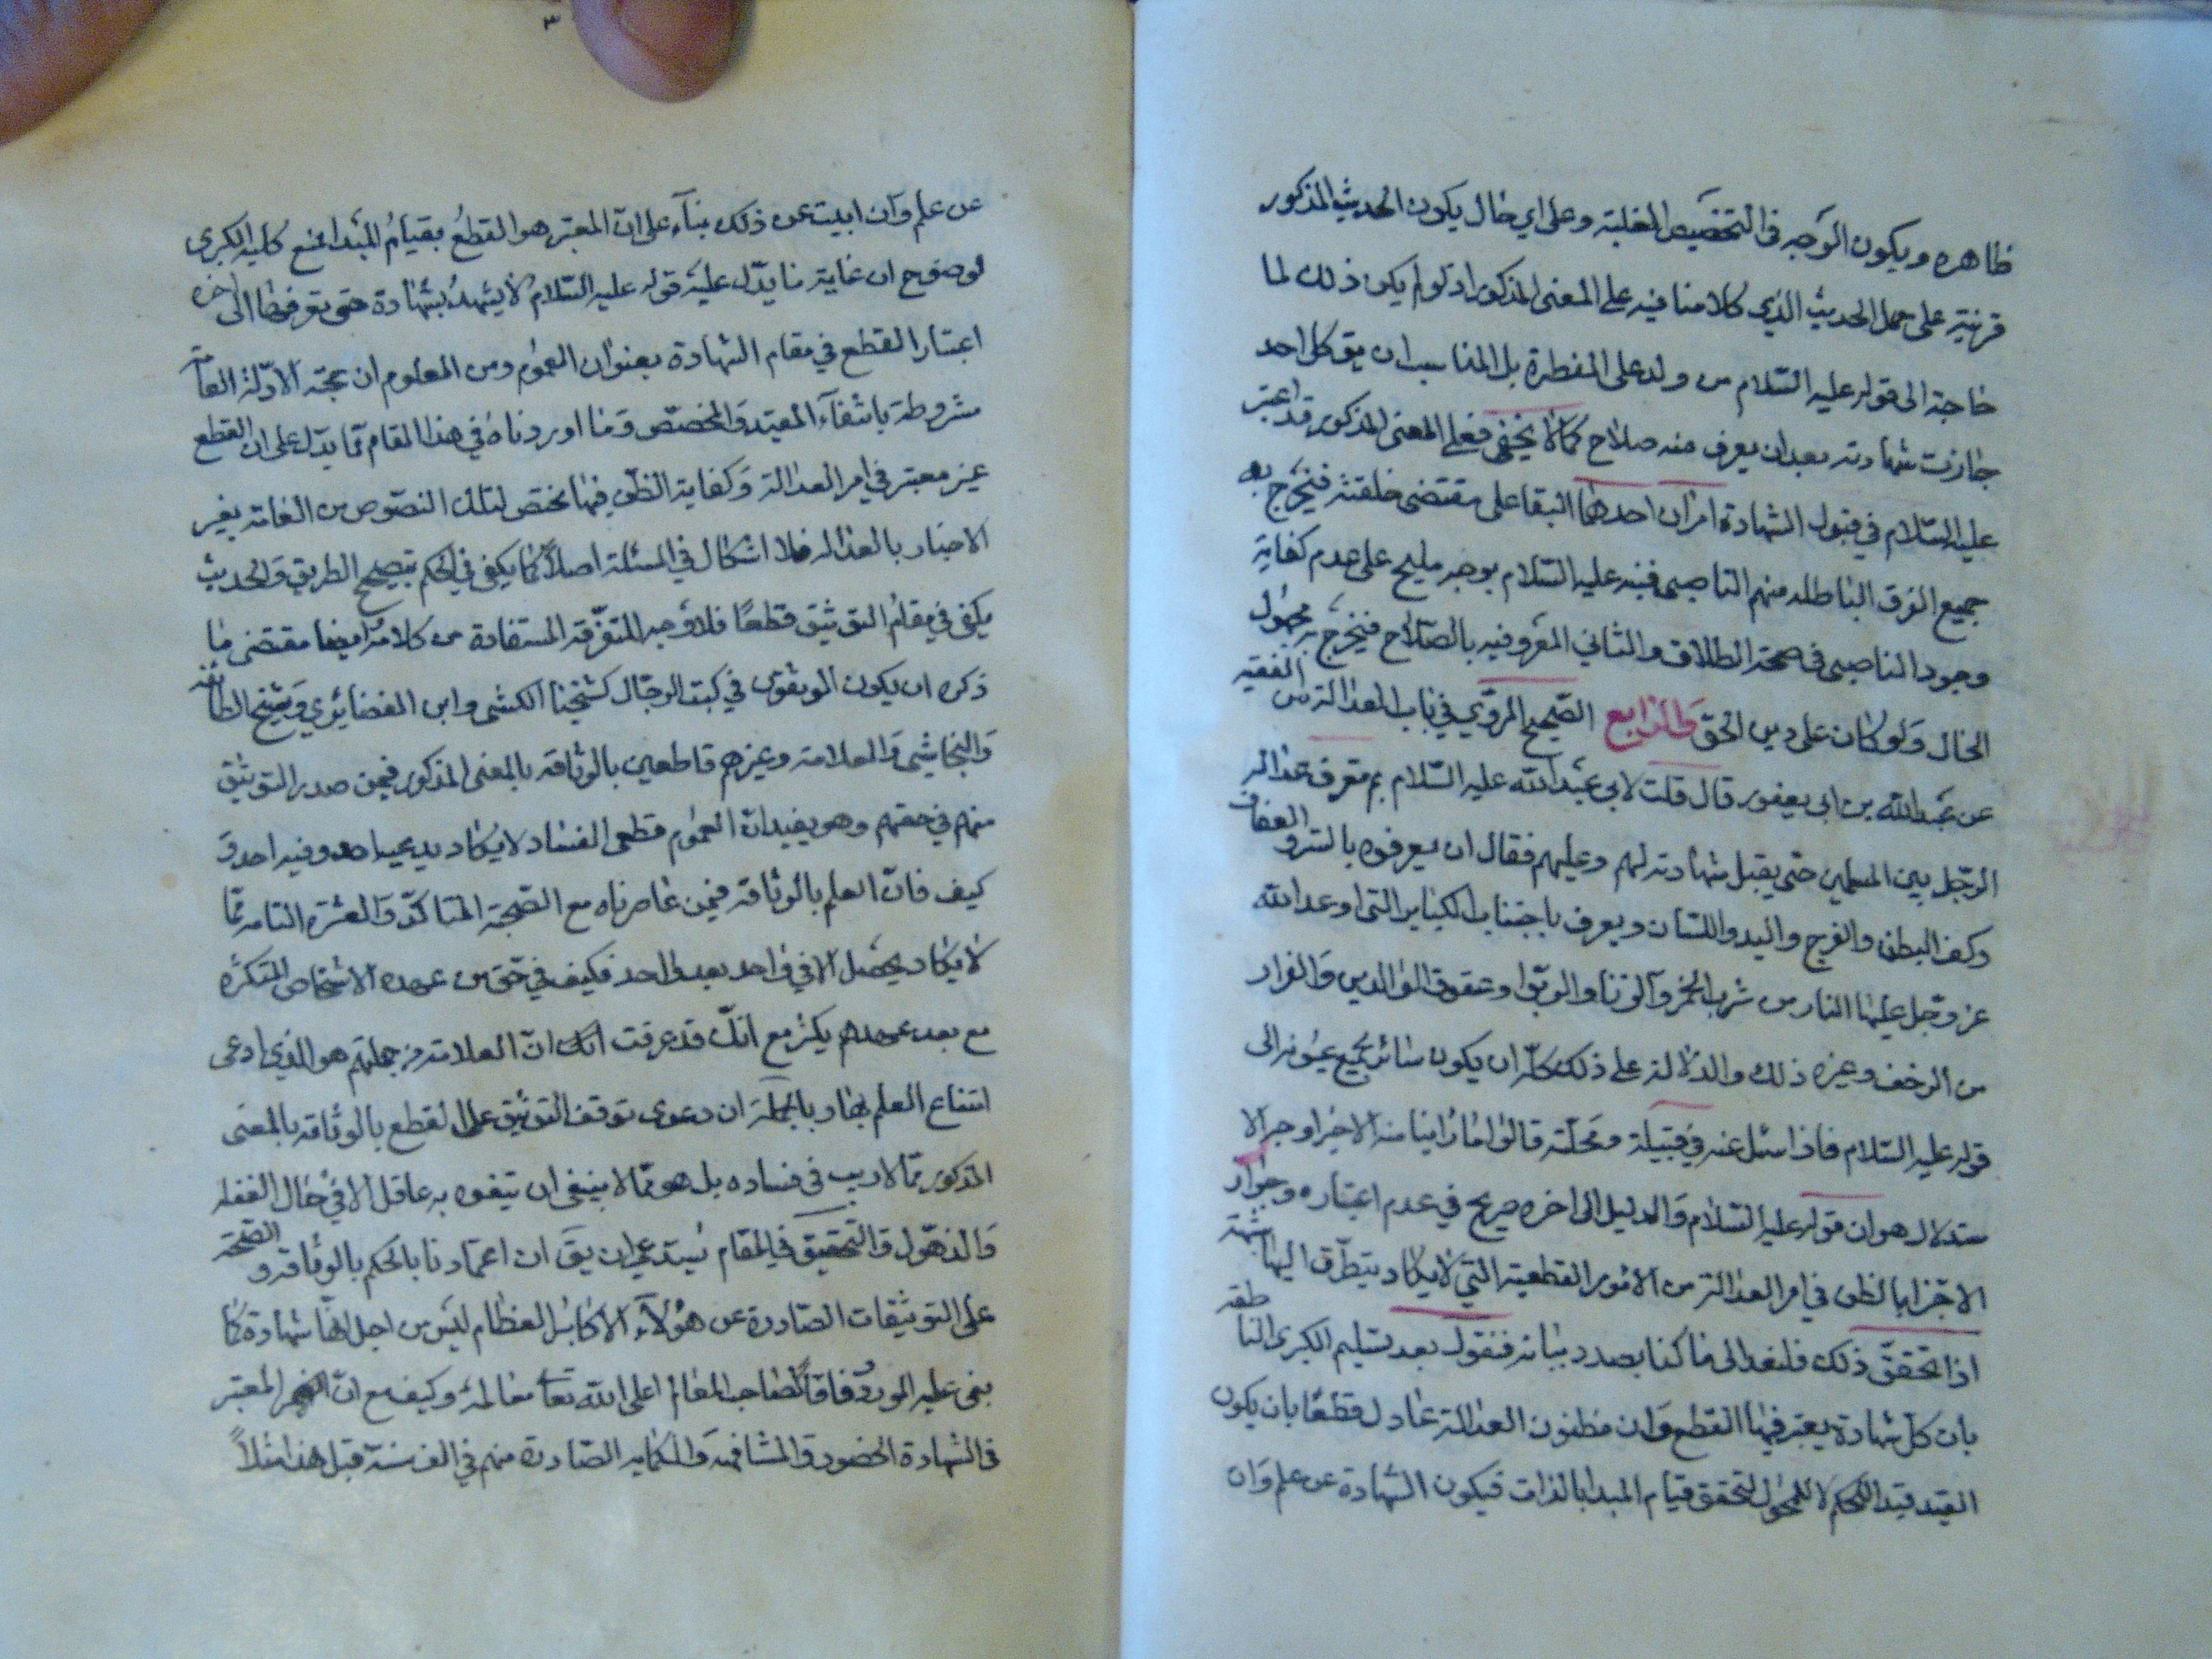 ظاهره ويكون الوجه فى التخصيص الغلبة وعلى اي حال يكون الحديث المذكور
قرنية على حمل الحديث الذي كلامنا فيه على المعنى المذكور اذ لو لم يكن ذلك لما
حاجة الى قوله عليه السّلام من ولد على الفطرة بل المناسب ان يق كل احد
جازت شهادته بعد ان يعرف منه صلاح كما لا يخفى فعلى المعنى المذكور قد اعتبر
عليه السّلام في قبول الشهادة امران احدهما البقا على مقتضى خلقته فيخرج به
جميع الفرق الباطله منهم الناصبى فنبه عليه السّلام بوجه مليح على عدم كفاية
وجود الناصبى فى صحة الطلاق والثاني المعروفيه بالصّلاح فيخرج به مجهول
الحال ولو كان على دين الحق والرابع الصّحيح المروّي في باب العدالة من الفقيه
عن عبد الله بن ابى يعفور قال قلت لابى عبد الله عليه السّلام بم تعرف عدالة
الرّجل بين المسلمين حتى يقبل شهادته لهم وعليهم فقال ان يعرفوه بالستر والعفاف
وكف البطن والفرج واليد واللسان ويعرف باجتناب الكباير التى اوعد الله
عز وجل عليها النار من شرب الخمر والزنا والربوا وعقوق الوالدين والفرار
من الزحف وغيره ذلك والدلالة على ذلك كله ان يكون ساتر بجميع عيوبه الى
قوله عليه السّلام فاذا سئل عنه في قبيلة ومحلّته قالوا ما راينا منه الا خيرا وجه الا
ستدلال هو ان قوله عليه السّلام والدليل الى اخره صريح في عدم اعتباره وجواز
الاجتزا بالظن في امر العدالة من الامور القطعية التي لا يكاد يتطرّق اليها شبهة
اذا تحقق ذلك فلنعد الى ما كنا بصدد بيانه فنقول بعد تسليم الكبرى الناطقه
بان كل شهادة يعتبر فيها القطع وان مظنون العدالة عادل قطعًا بان يكون
القيد قيد اللحكم لا للمحمول لتحقق قيام المبدا بالذات فيكون الشهادة عن علم وان
٣
عن علم وان ابيت عن ذلك بناء على ان المعتبر هو القطع بقيام المبدا نمنع كلية الكبرى
لوضوح ان غاية ما يدّل عليه قوله عليه السّلام لا يشهد بشهادة حتى تعرفها الى اخره
اعتبار القطع في مقام الشهادة بعنوان العموم ومن المعلوم ان حجته الادلة العامة
مشروطة بانتفآء المقيد والمخصّص وما اوردناه في هذا المقام مما يدّل على ان القطع
غير معتبر في امر العدالة وكفاية الظن فيها مختص لتلك النصوص من العامة بغير
الاخبار بالعدالة فلا اشكال في المسئلة اصلاً كما يكفى في الحكم بتصحيح الطريق والحديث
يكفى في مقام التوثيق قطعًا فلا وجه للتفرّقه المستفادة من كلامه ايضا مقتضى ما
ذكره ان يكون الموثقون في كتب الرجال كشيخنا الكشى وابن الغضائري وشيخ الطائفه
والنجاشي والعلامة وغيرهم قاطعين بالوثاقة بالمعنى المذكور فيمن صدر التوثيق
منهم في حقهم وهو بقيد ان العموم قطعى الفساد لا يكاد يدعيه احد وفيه احد و
كيف فانّ العلم بالوثاقة فيمن عاصرناه مع الصّحبة المتاكدّة والعشرة التامة ممّا
لا يكاد يحصل الا في واحد بعد واحد فكيف في حق من عهده الاشخاص المتكثره
مع بعد عهدهم يكثر مع انك قد عرفت انك انّ العلامة من جملتهم هو الذي ادعى
امتناع العلم بها وبالجملة ان دعوى توقف التوثيق على القطع بالوثاقة بالمعنى
المذكور ممّا لا ريب فى فساده بل هو ممّا لا ينبغى ان يتفوه به عاقل الا في حال الغفله
والذهول والتحقيق في المقام يستدعي ان يق ان اعتمادنا بالحكم بالوثاقة والصّحة
على التوثيقات الصّادرة عن هؤلآء الاكابر العظام ليس من اجل انّها شهادة كما
بنى عليه المورد وفاقاً لصاحب المعالم اعلى الله تعا معالمه وكيف مع انّ المعتبر
فى الشهادة الحضور والمشافهه والكتابه الصّادرة منهم في الف سنة قبل هذا مثلاً